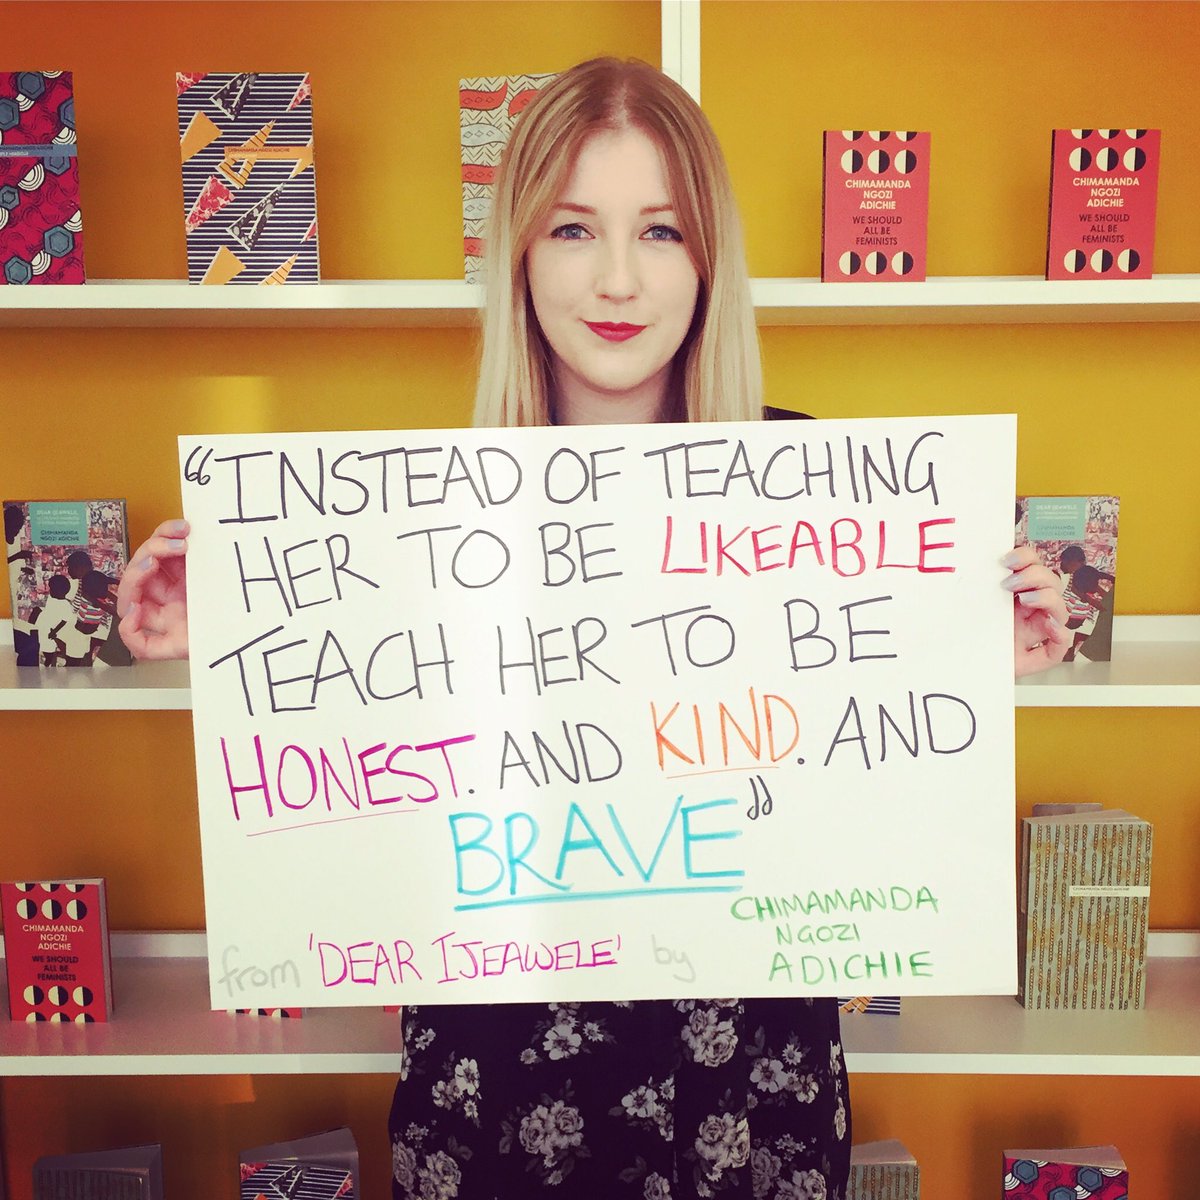 CHIMAMANDA NGOZI ADICHIE
CHIMAMANDA
NGOZI
ADICHIE
WE SHOULD
ALL BE
FEMINISTS
CHIMAMANDA
NGOZI
ADICHIE
WE SHOULD
ALL BE
FEMINISTS
“INSTEAD OF TEACHING
HER TO BE LIKEABLE
TEACH HER TO BE
HONEST. AND KIND. AND
BRAVE”
from 'DEAR IJEAWELE' by
CHIMAMANDA
NGOZI
ADICHIE
DEAR IJEAWELE,
CHIMAMANDA
NGOZI ADICHIE
DEAR IJEAWELE,
CHIMAMANDA
NGOZI ADICHIE
CHIMAMANDA
NGOZI
ADICHIE
WE SHOULD
ALL BE
FEMINISTS
CHIMAMANDA NGOZI ADICHIE